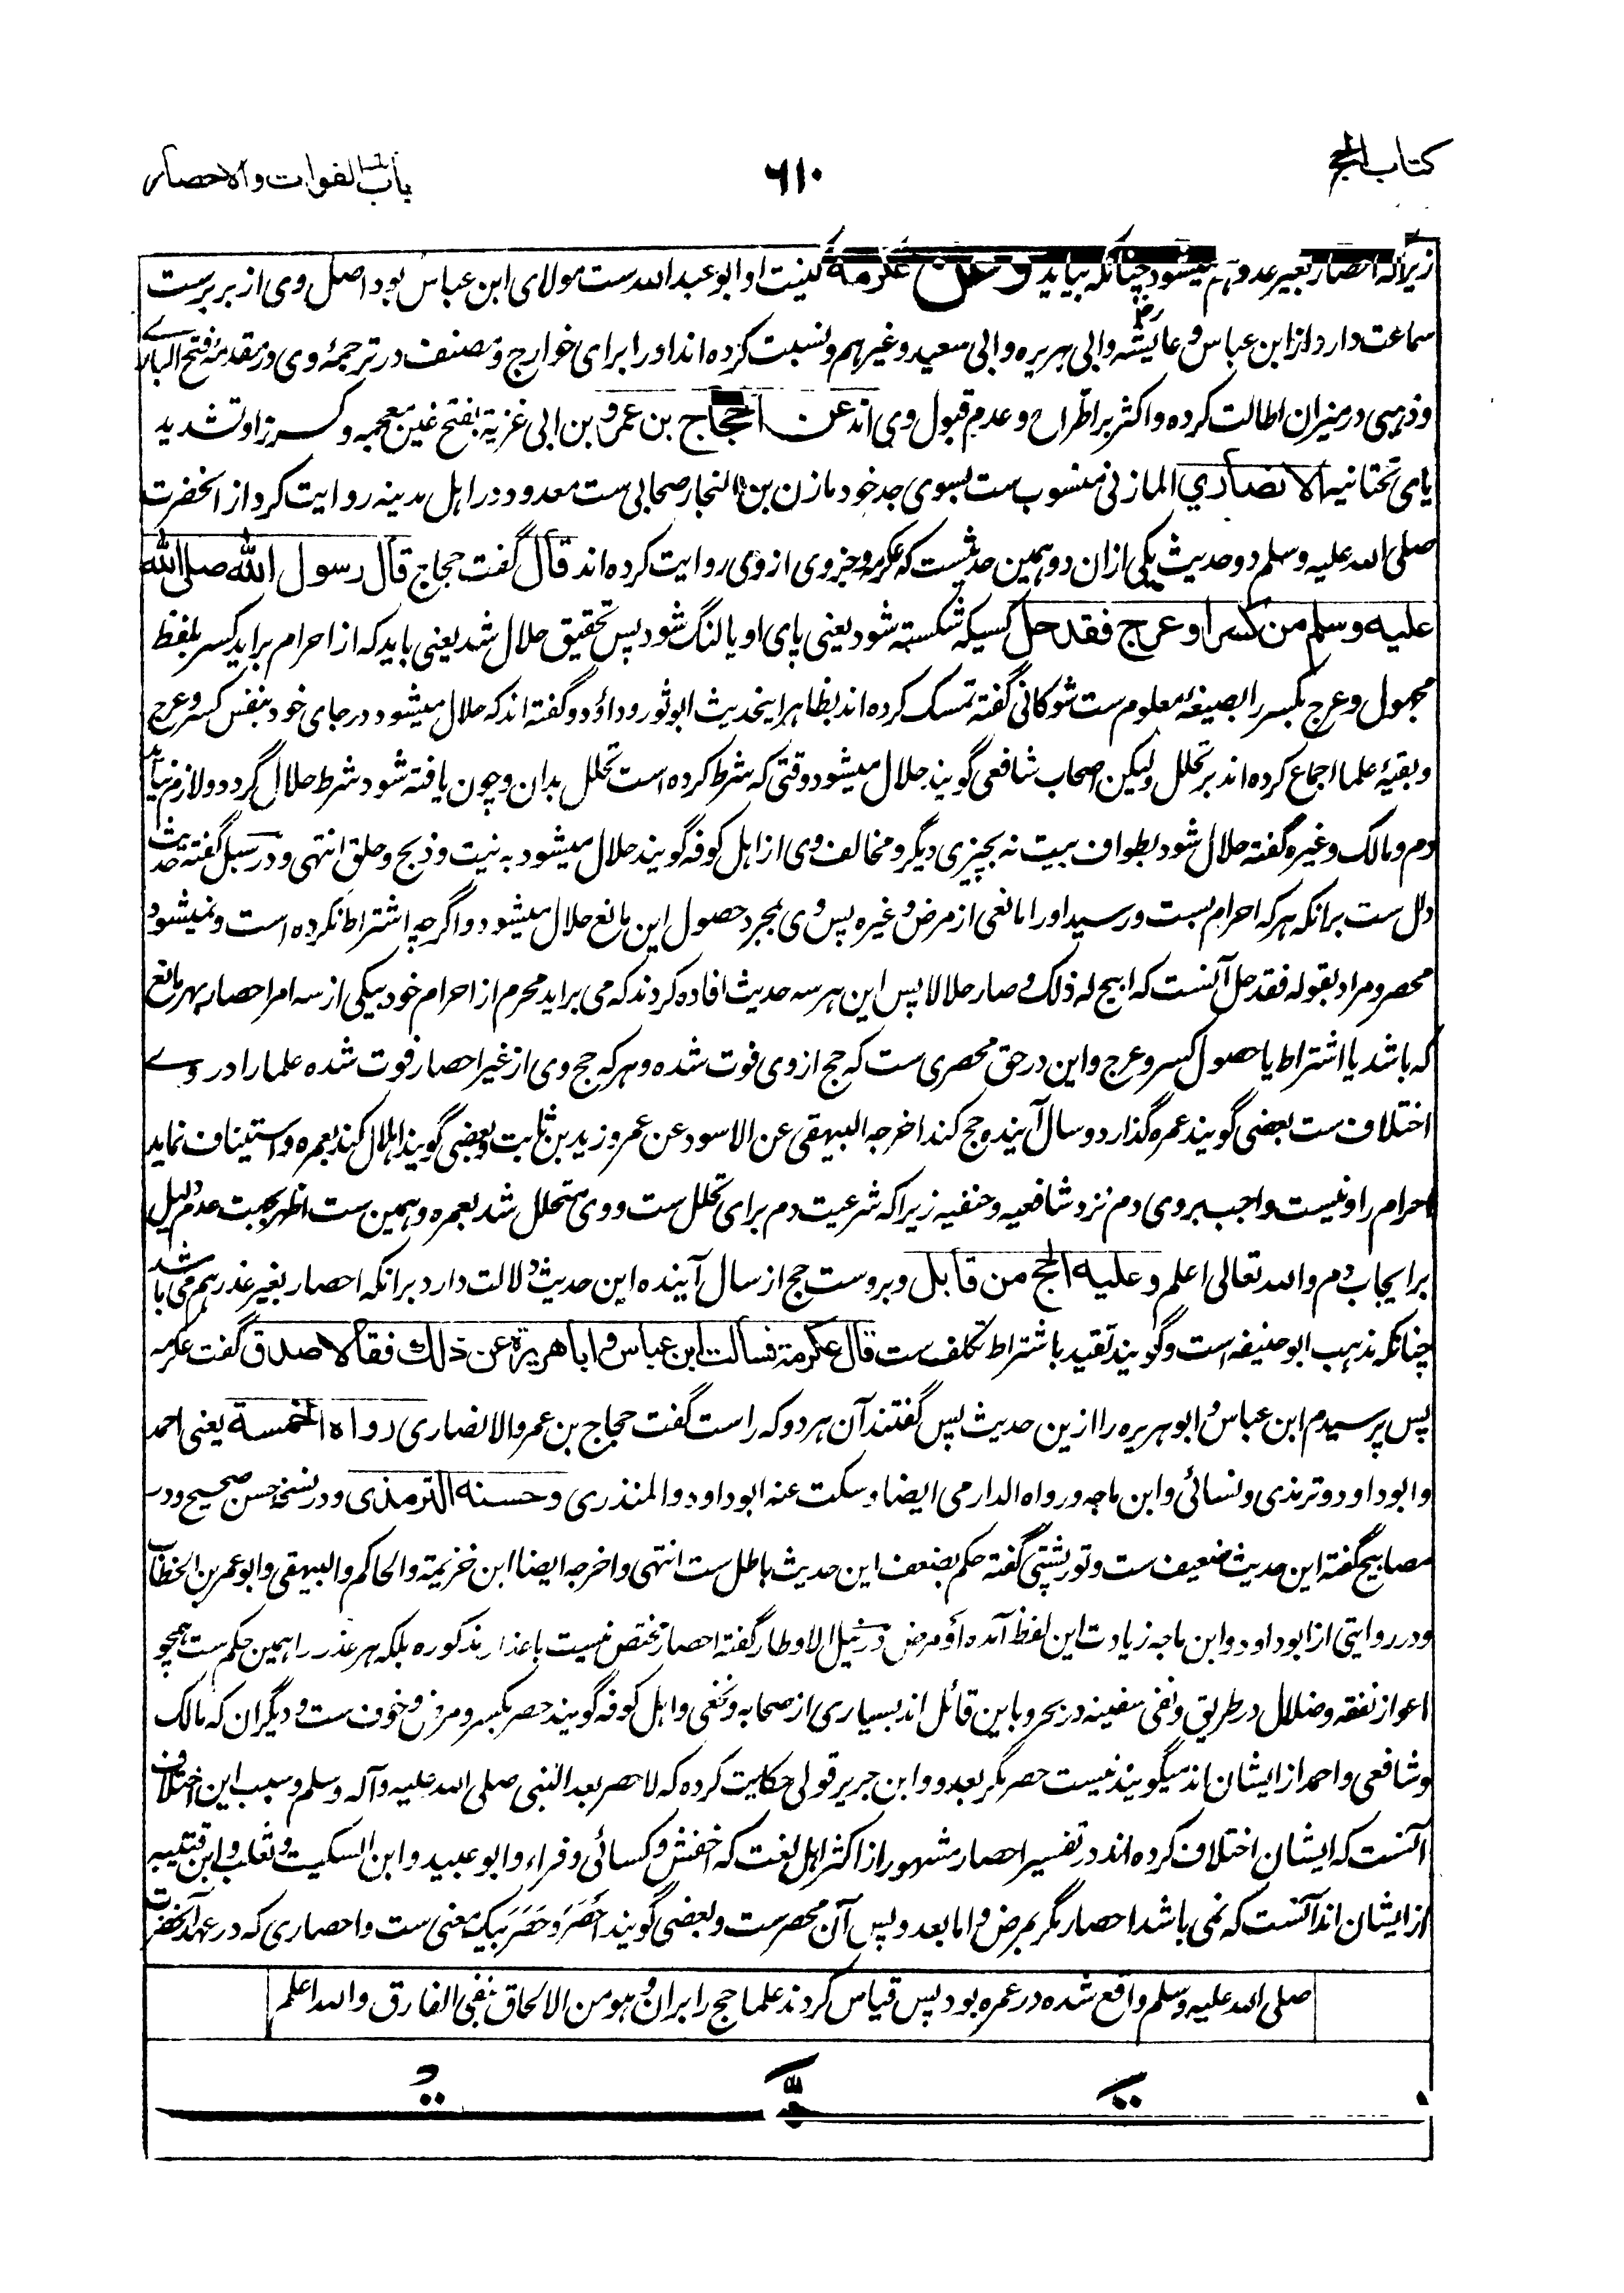 کتاب الحج
۶۱۰
باب الفوات والاحصار
زیراکه احصار بغیر عدو هم میشود چنانکه بیاید وعن عکرمة کنیت او ابو عبد الله ست مولای ابن عباس بود اصل وی از بربرست
سماعت دارد از ابن عباس و عایشه رض وابی هریره وابی سعید وغیرهم ونسبت کرده اند اورا برای خوارج ومصنف در ترجمهٔ وی در مقدمهٔ فتح الباری
وذهبی در میزان اطالت کرده واکثر بر اطراح وعدم قبول وی اند عن الحجاج بن عمرو بن ابی غزیة بفتح غین معجمه وکسر زا وتشدید
یای تحتانیه الانصاري المازنی منسوب ست بسوی جد خود مازن بن النجار صحابی ست معدود در اهل مدینه روایت کرد از آنحضرت
صلی الله علیه وسلم دو حدیث یکی ازان دو همین حدیثست که عکرمه وجز وی از وی روایت کرده اند قال گفت حجاج قال رسول الله صلی الله
علیه وسلم من کسر او عرج فقد حل کسیکه شکسته شود یعنی پای او یا لنگ شود پس تحقیق حلال شد یعنی باید که از احرام براید کسر بلفظ
مجهول وعرج بکسر را بصیغهٔ معلوم ست شوکانی گفته تمسک کرده اند بظاهر اینحدیث ابو ثور وداؤد وگفته اند که حلال میشود در جای خود بنفس کسر وعرج
وبقیهٔ علما اجماع کرده اند بر تحلل ولیکن اصحاب شافعی گویند حلال میشود وقتی که شرط کرده است تحلل بدان وچون یافته شود شرط حلال گردد ولازم نیاید
دم ومالک وغیره گفته حلال شود بطواف بیت نه بچیزی دیگر ومخالف وی از اهل کوفه گویند حلال میشود به نیت وذبح وحلق انتهی ودر سبل گفته حدیث
دال ست برانکه هر که احرام بست ورسید اورا مانعی از مرض وغیره پس وی بمجرد حصول این مانع حلال میشود واگرچه اشتراط نکرده است ونمیشود
محصر ومراد بقوله فقد حل آنست که ابیح له ذلک وصار حلالا پس این هر سه حدیث افاده کردند که می براید محرم از احرام خود بیکی از سه امر احصار بهر مانع
که باشد یا اشتراط یا حصول کسر وعرج واین در حق محصری ست که حج از وی فوت شده وهر که حج وی از غیر احصار فوت شده علما را در وے
اختلاف ست بعضی گویند عمره گذارد وسال آینده حج کند اخرجه البیهقی عن الاسود عن عمر وزید بن ثابت وبعضی گویند اهلال کند بعمره واستیناف نماید
احرام را ونیست واجب بروی دم نزد شافعیه وحنفیه زیراکه شرعیت دم برای تحلل ست ووی متحلل شد بعمره وهمین ست اظهر بجهت عدم دلیل
برایجاب دم والله تعالی اعلم وعلیه الحج من قابل وبروست حج از سال آینده این حدیث دلالت دارد برانکه احصار بغیر عذر هم می باشد
چنانکه مذهب ابو حنیفه است وگویند تقیید باشتراط تکلف ست قال عکرمة فسالت ابن عباس وابا هریرة عن ذلك فقالا صدق گفت عکرمه
پس پرسیدم ابن عباس وابو هریره را ازین حدیث پس گفتند آن هر دو که راست گفت حجاج بن عمرو الانصاری رواه الخمسة یعنی احمد
وابو داود وترمذی ونسائی وابن ماجه ورواه الدارمی ایضا وسکت عنه ابو داود والمنذری وحسنه الترمذی ودر نسخهٔ حسن صحیح ودر
مصابیح گفته این حدیث ضعیف ست وتورپشتی گفته حکم بضعف این حدیث باطل ست انتهی واخرجه ایضا ابن خزیمة والحاکم والبیهقی وابو عمر بن الخطاب
ودر روایتی از ابو داود وابن ماجه زیادت این لفظ آمده او مرض در نیل الاوطار گفته احصار مختص نیست باعذار مذکوره بلکه هر عذر را همین حکم ست همچو
اعواز نفقه وضلال در طریق ونفی سفینه در بحر وباین قائل اند بسیاری از صحابه ونخعی واهل کوفه گویند حصر بکسر ومرض وخوف ست ودیگران که مالک
وشافعی واحمد از ایشان اند میگویند نیست حصر مگر بعدو وابن جریر قولی حکایت کرده که لا حصر بعد النبی صلی الله علیه وآله وسلم وسبب این اختلاف
آنست که ایشان اختلاف کرده اند در تفسیر احصار مشهور از اکثر اهل لغت که اخفش وکسائی وفراء وابو عبید وابن السکیت وثعلب وابن قتیبه
از ایشان اند آنست که نمی باشد احصار مگر بمرض واما بعدو پس آن محصرست وبعضی گویند اَحْصَرَ وحَصَرَ بیک معنی ست واحصاری که در عهد آنحضرت
صلی الله علیه وسلم واقع شده در عمره بود پس قیاس کردند علما حج را بران وهو من الالحاق بنفی الفارق والله اعلم